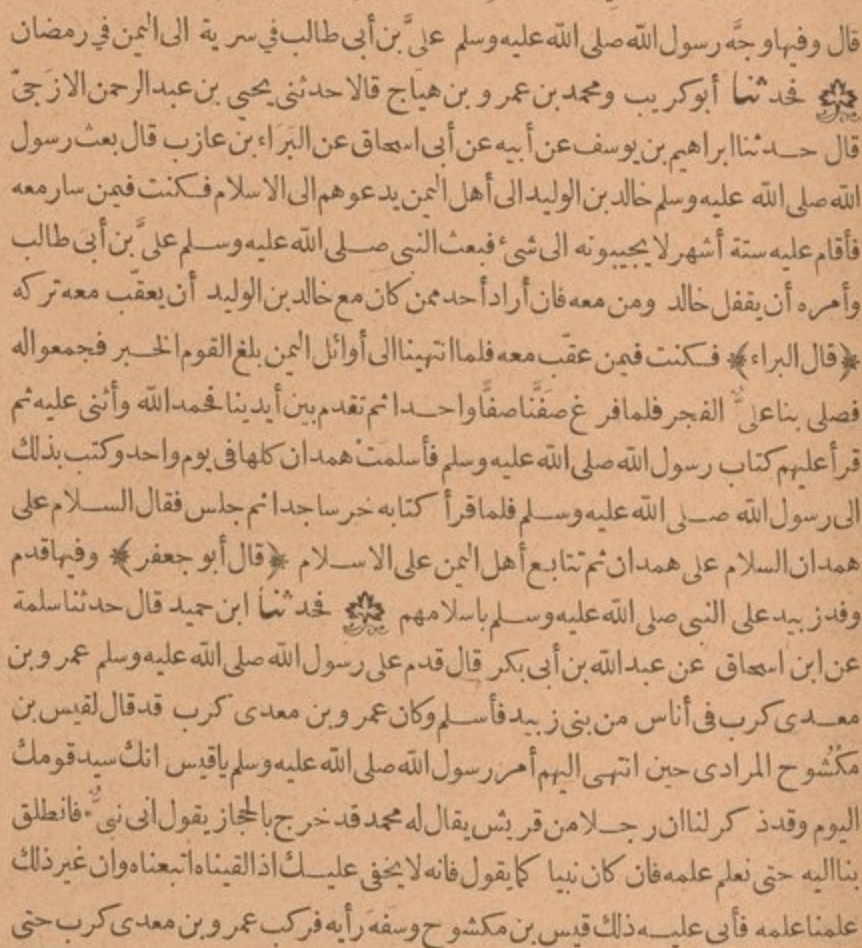 قال وفيها وجَّه رسول الله صلى الله عليه وسلم علىَّ بن أبى طالب فى سرية الى اليمن فى رمضان
فحدثنا أبو كريب ومحمد بن عمرو بن هياج قالا حدثنى يحيى بن عبد الرحمن الازجىّ
قال حدثنا ابراهيم بن يوسف عن أبيه عن أبى اسحاق عن البَراء بن عازب قال بعث رسول
الله صلى الله عليه وسلم خالد بن الوليد الى أهل اليمن يدعوهم الى الاسلام فكنت فيمن سار معه
فأقام عليه ستة أشهر لا يجيبونه الى شىء فبعث النبى صلى الله عليه وسلم علىَّ بن أبى طالب
وأمره أن يقفل خالد ومن معه فان أراد أحد ممن كان مع خالد بن الوليد أن يعقّب معه تركه
﴿قال البراء﴾ فكنت فيمن عقّب معه فلما انتهينا الى أوائل اليمن بلغ القوم الخبر فجمعوا له
فصلى بنا علىٌّ الفجر فلما فرغ صفَّنا صفًّا واحدا ثم تقدم بين أيدينا فحمد الله وأثنى عليه ثم
قرأ عليهم كتاب رسول الله صلى الله عليه وسلم فأسلمتْ همدان كلها فى يوم واحد وكتب بذلك
الى رسول الله صلى الله عليه وسلم فلما قرأ كتابه خر ساجدا ثم جلس فقال السلام على
همدان السلام على همدان ثم تتابع أهل اليمن على الاسلام ﴿قال أبو جعفر﴾ وفيها قدم
وفد زبيد على النبى صلى الله عليه وسلم باسلامهم فحدثنا ابن حميد قال حدثنا سلمة
عن ابن اسحاق عن عبد الله بن أبى بكر قال قدم على رسول الله صلى الله عليه وسلم عمرو بن
معدى كرب فى أناس من بنى زبيد فأسلم وكان عمرو بن معدى كرب قد قال لقيس بن
مَكْشُوح المرادى حين انتهى اليهم أمر رسول الله صلى الله عليه وسلم يا قيس انك سيد قومك
اليوم وقد ذكر لنا ان رجلا من قريش يقال له محمد قد خرج بالحجاز يقول انى نبىٌّ فانطلق
بنا اليه حتى نعلم علمه فان كان نبيا كما يقول فانه لا يخفى عليك اذا لقيناه اتبعناه وان غير ذلك
علمنا علمه فأبى عليه ذلك قيس بن مكشوح وسفهَ رأيه فركب عمرو بن معدى كرب حتى